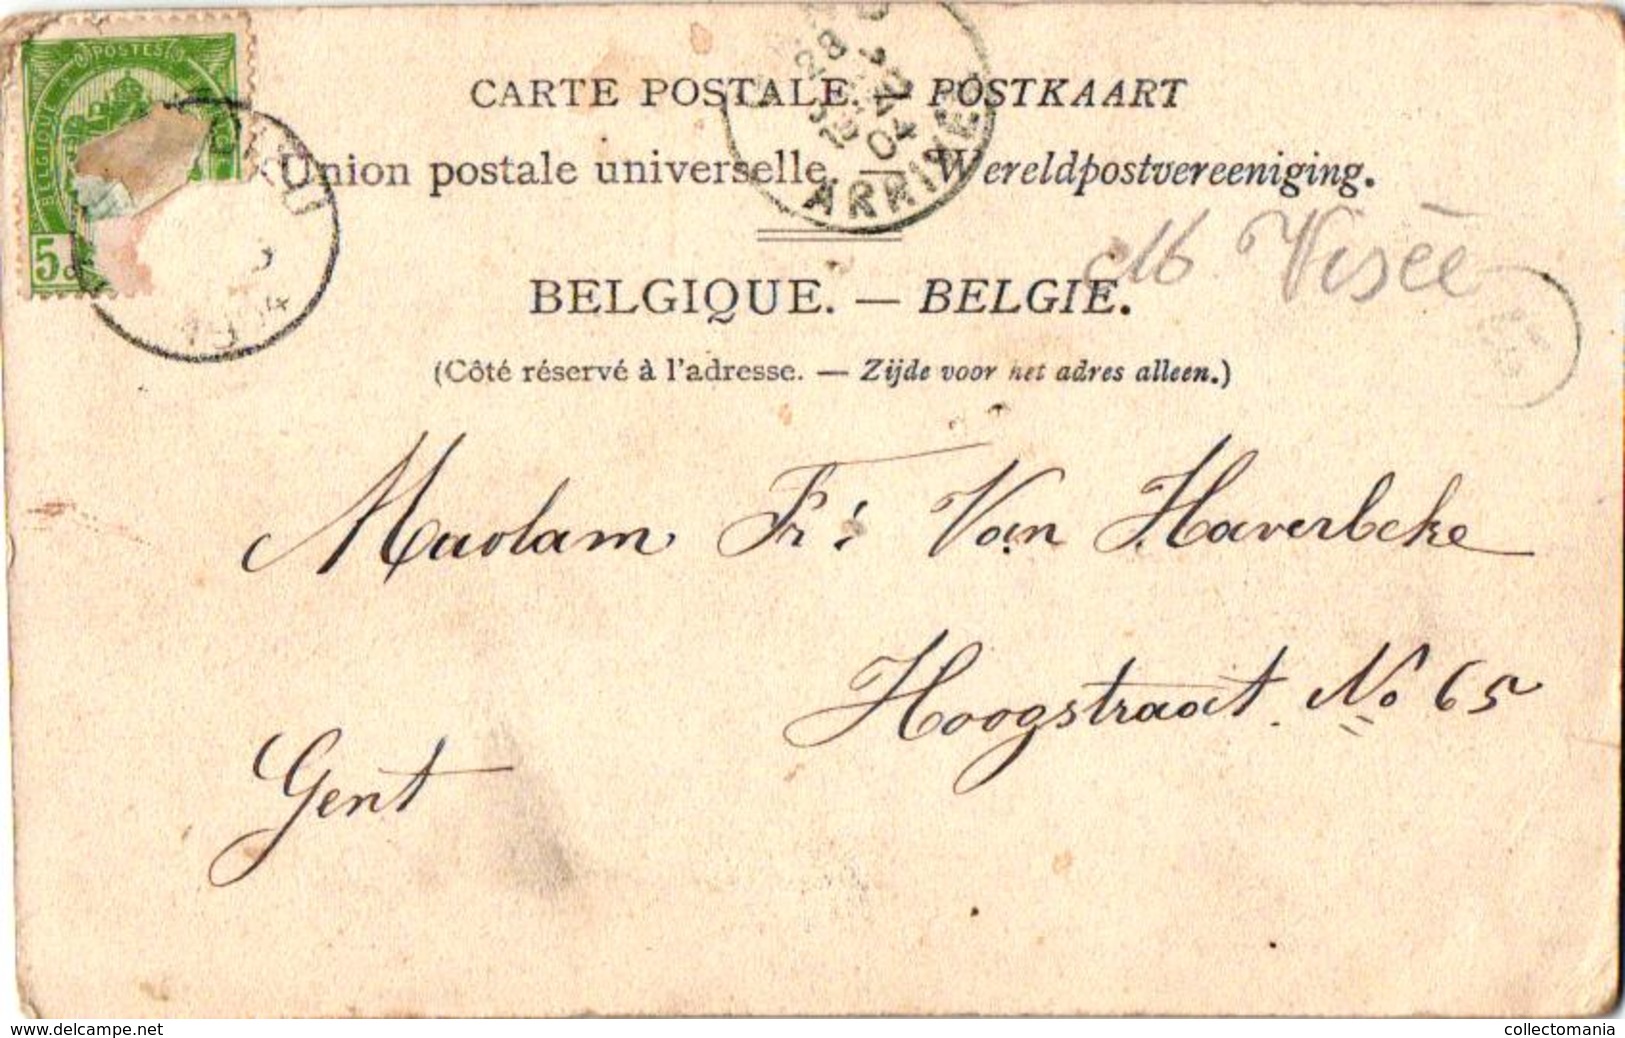 POSTES
BELGIQUE
5c
CARTE POSTALE. — POSTKAART
Union postale universelle. — Wereldpostvereeniging.
ARRIVEE
BELGIQUE. — BELGIE.
Visée
(Côté réservé à l'adresse. — Zijde voor het adres alleen.)
Madam Fr: Van Haverbeke
Hoogstraat. No 65
Gent
www.delcampe.net
collectomania